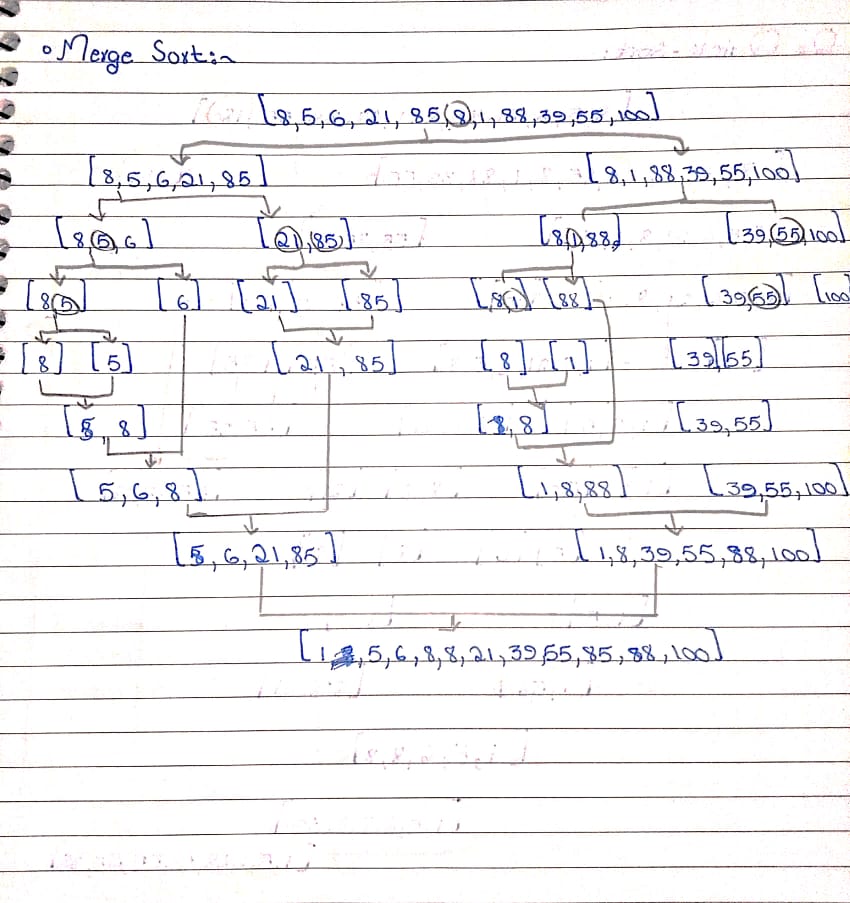 Merge Sort:~
[8,5,6, 21, 85,8,1,88,39,55,100]
[8,5,6,21,85] [8,1,88,39,55,100]
[8,5,6] [21,85] [8,1,88] [39,55,100]
[8,5] [6] [21] [85] [8,1] [88] [39,55] [100
[8] [5] [21, 85] [8] [1] [39][55]
[5, 8] [1, 8] [39,55]
[5,6,8] [1,8,88] [39,55,100]
[5, 6,21,85] [1,8,39,55,88,100]
[1,5,6,8,8,21,39,55,85,88,100]